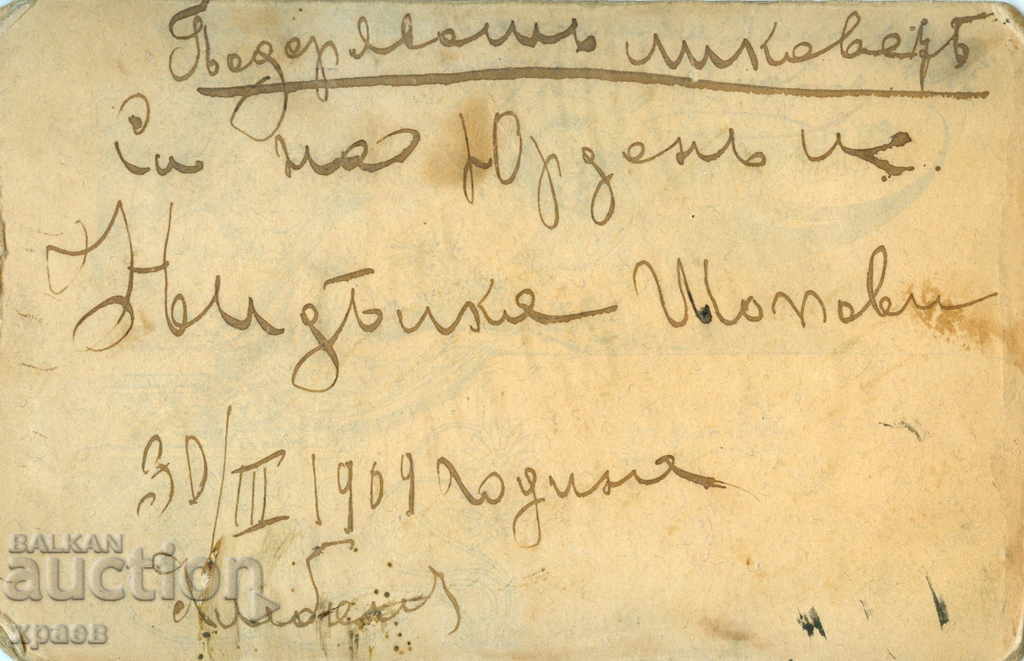 Подарявамъ ликоветѣ
си на Юрданъ и
Шопови
30/III 1909 година
BALKAN
auction
храев